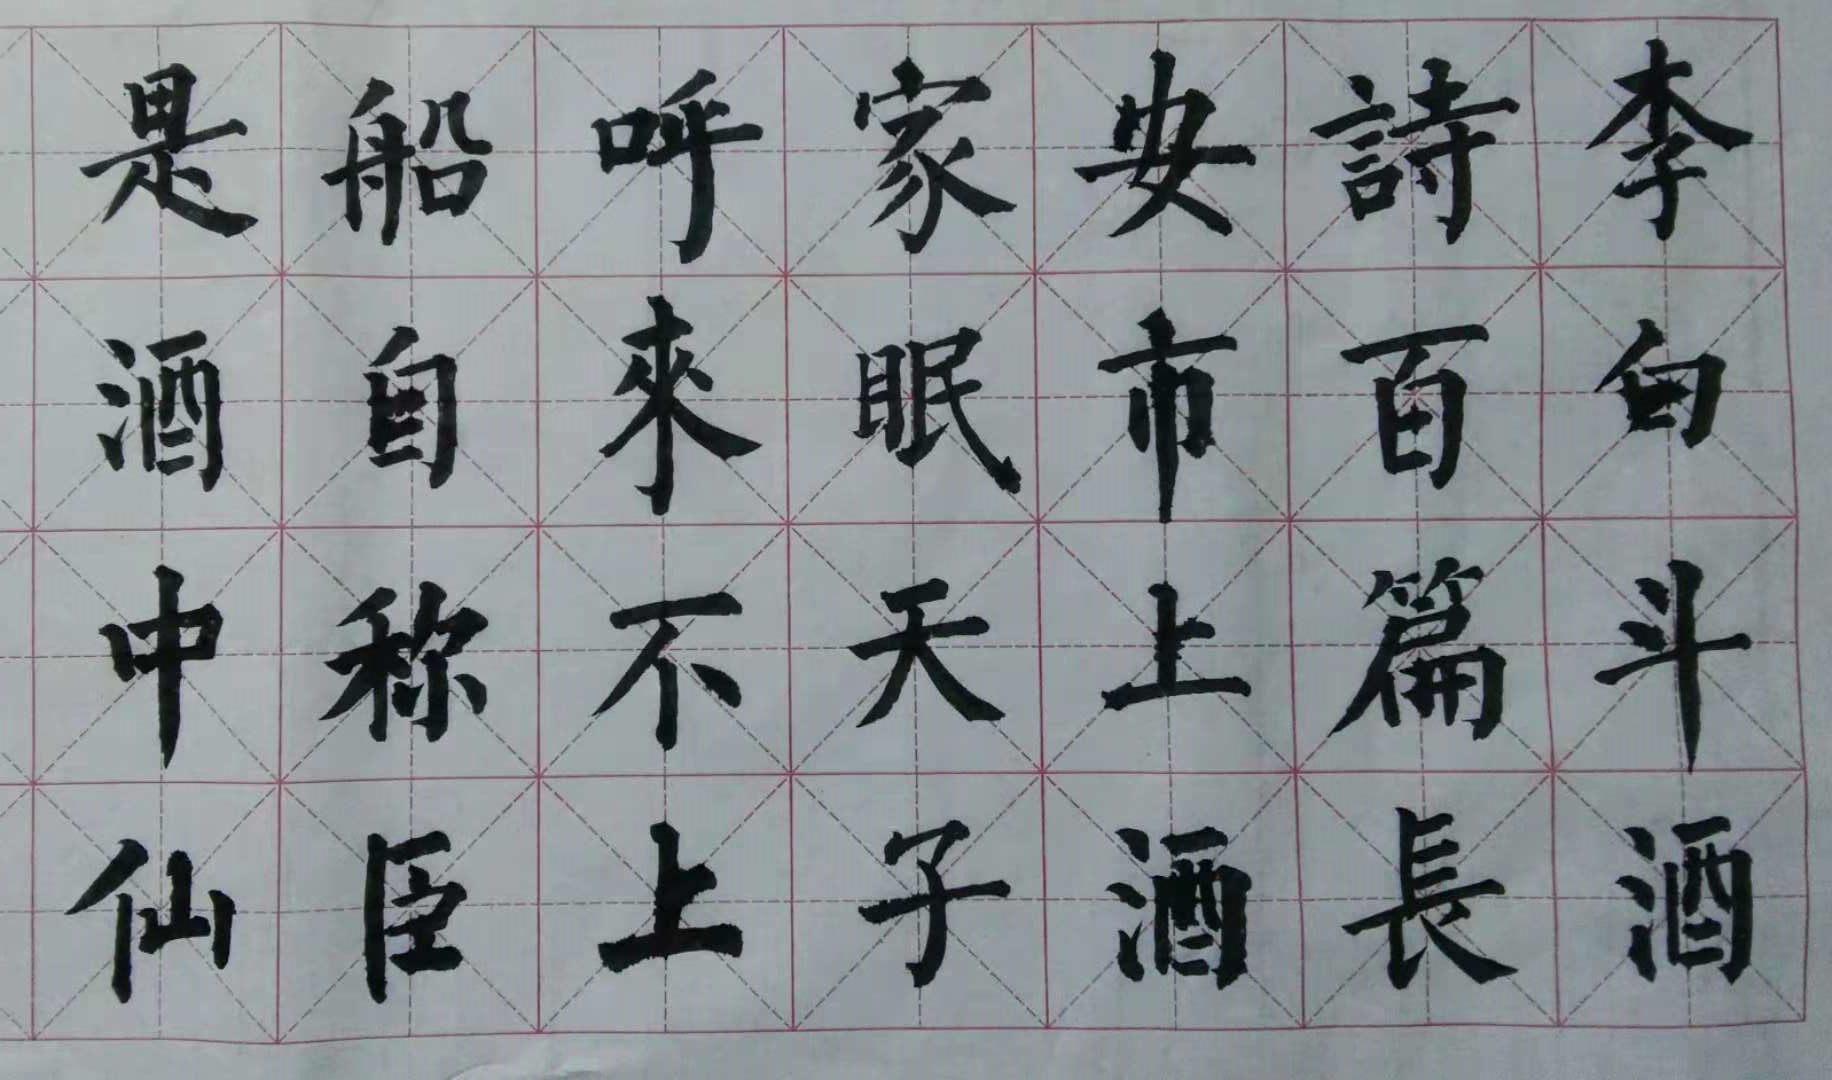 李白斗酒
詩百篇長
安市上酒
家眠天子
呼來不上
船自称臣
是酒中仙